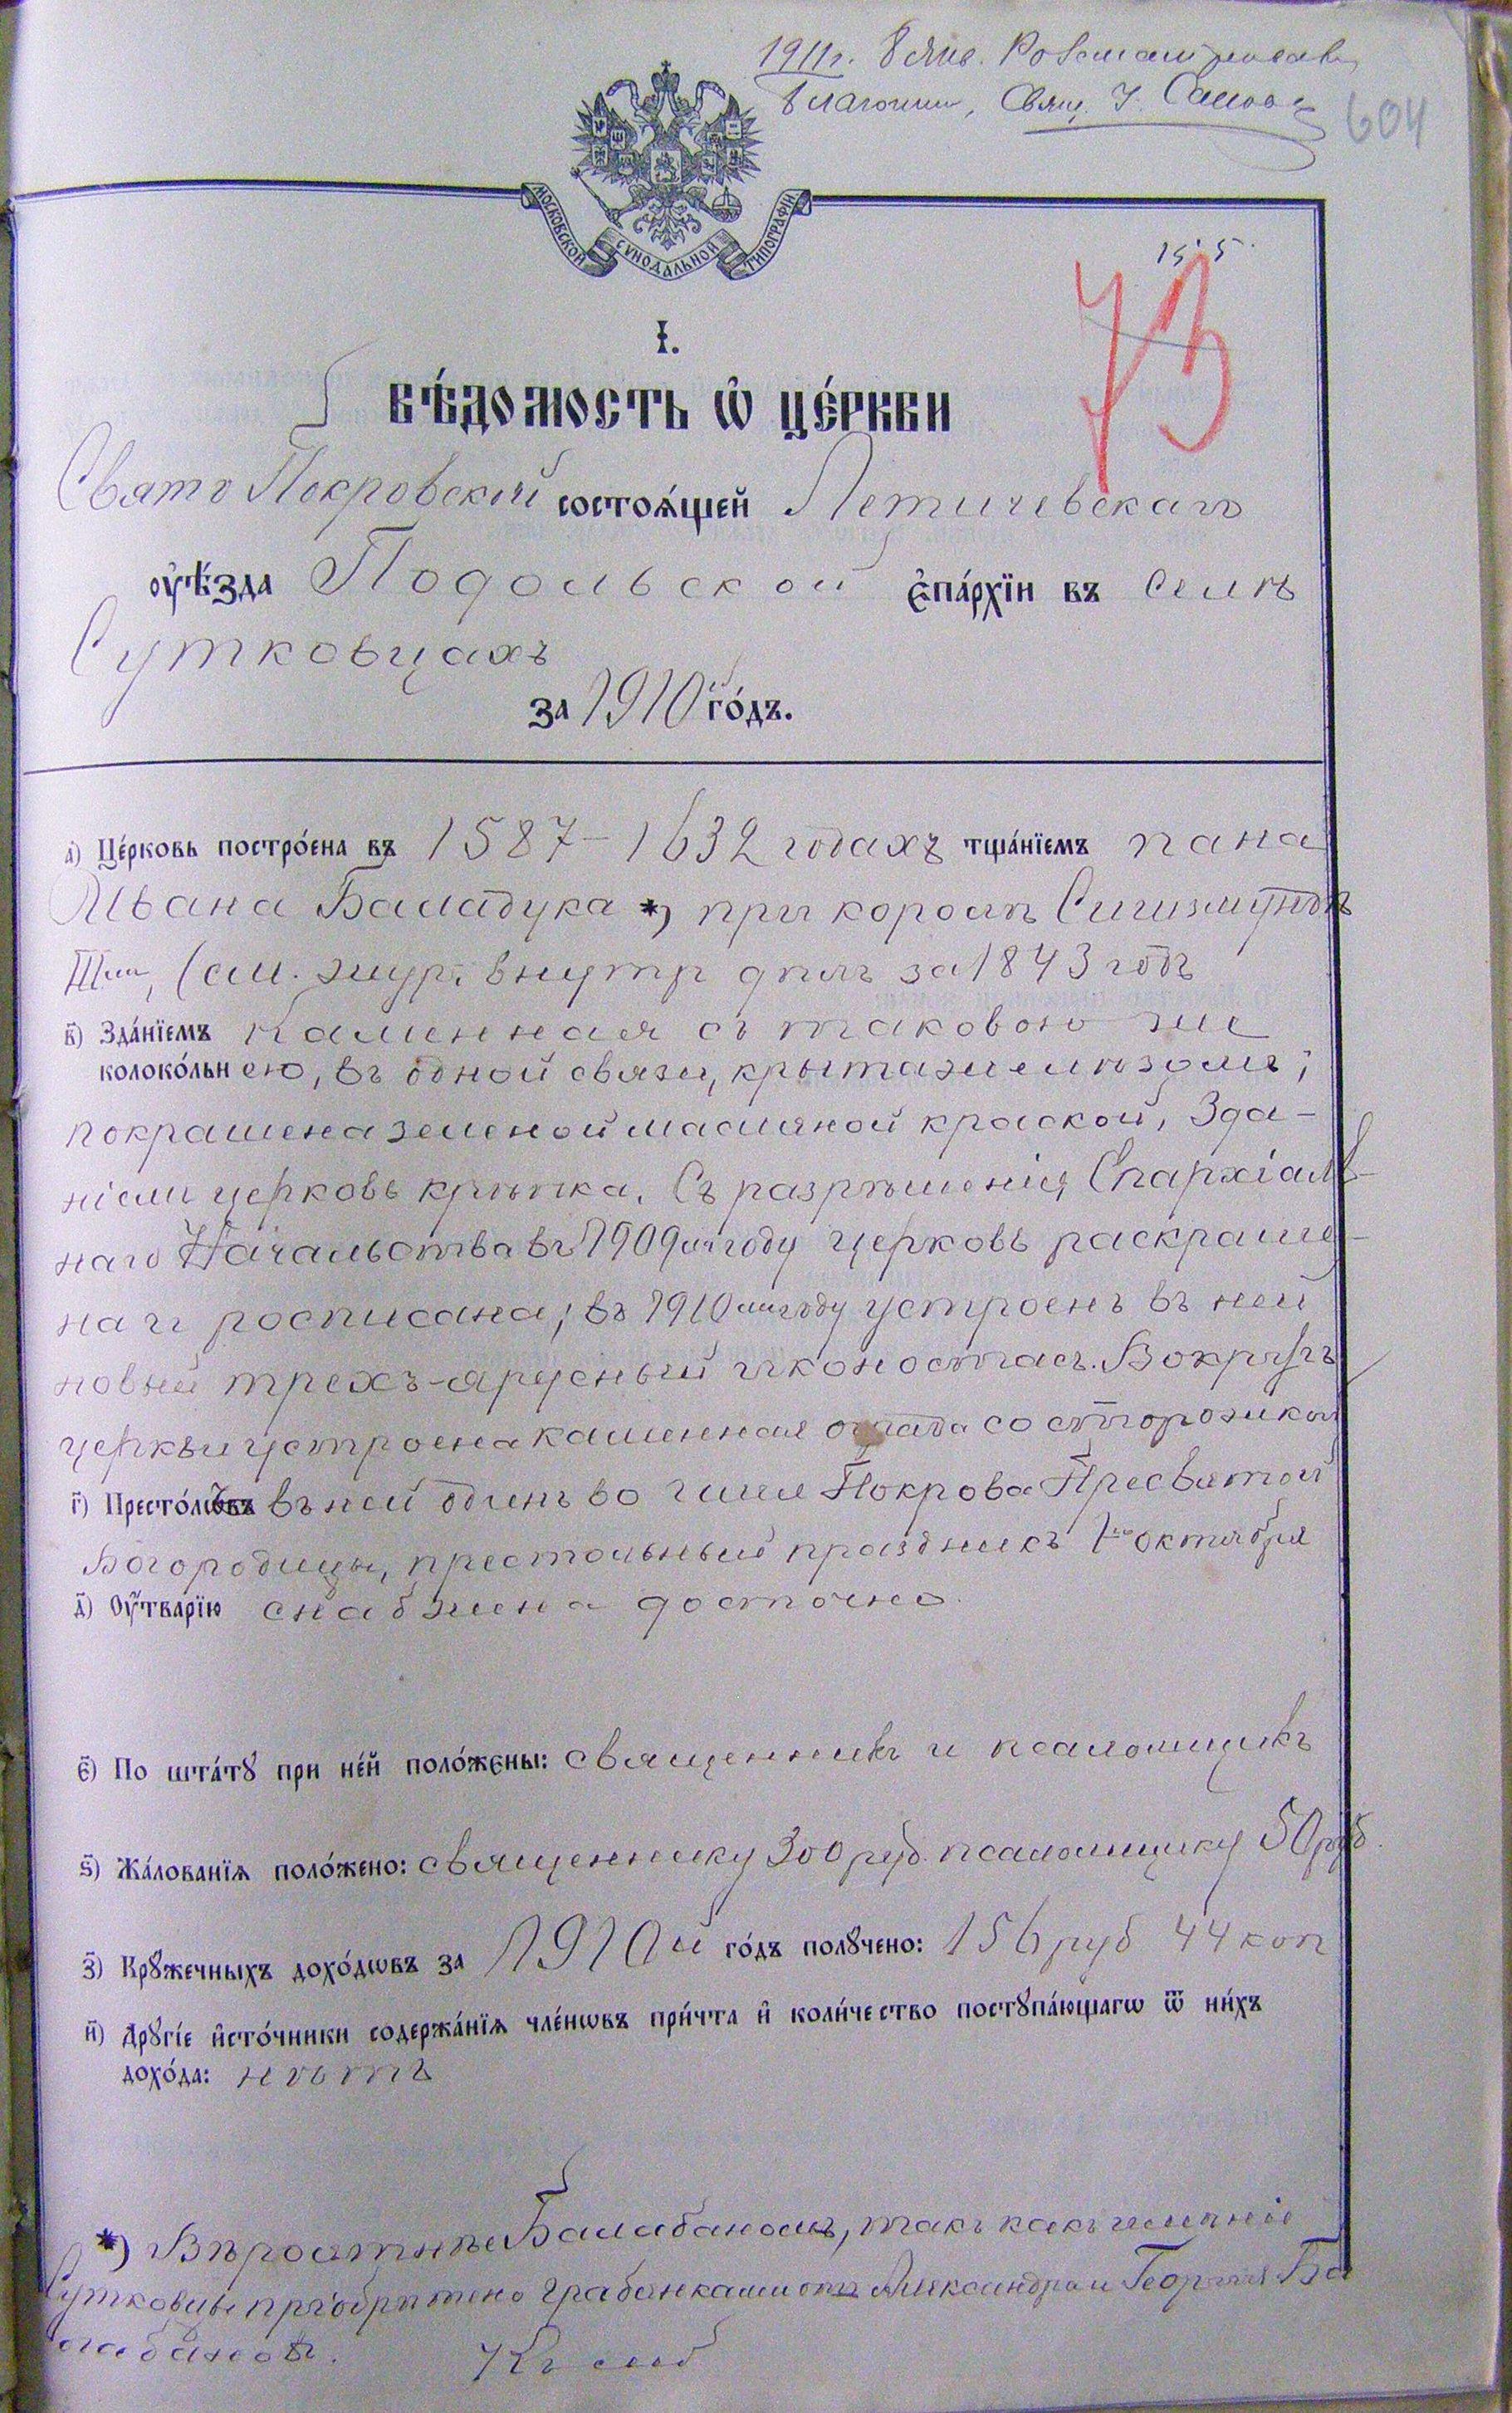 1911г. 8 Янв.
Благочин, Свящ. І.
604
МОСКОВСКОЙ СѴНОДАЛЬНОЙ ТИПОГРАФІИ
73
І.
ВѢ́ДОМОСТЬ Ѡ҆ ЦЕ́РКВИ
Свято Покровской состоѧ́щей Летичевскаго
ᲂу҆ѣ́зда Подольской є҆па́рхїи въ селѣ
Сутковцахъ
за 1910й го́дъ.
а҃) Це́рковь постро́ена въ 1587–1632 годахъ тща́нїемъ пана
Ивана *) при королѣ Сигизмундѣ
IIIмъ, (см. жур. внутр дѣлъ за 1843 годъ
в҃) Зда́нїемъ Каменная съ таковою же
колоко́льнею, въ одной связи, крыта желѣзомъ;
покрашена зеленой масляной краской, Зда-
ніемъ церковь крѣпка. Съ разрѣшенія Епархіаль-
наго Начальства въ 1909мъ году церковь раскраше-
на и росписана; въ 1910мъ году устроенъ въ ней
новый трехъ-ярусный иконостасъ. Вокругъ
церкви устроена каменная ограда со сторожкой
г҃) Престо́лѡвъ въ ней одинъ во имя Покрова Пресвятой
Богородицы, престольный праздникъ 1го октября
д҃) Оу҆́тварїю снабжена досточно.
є҃) По шта́тꙋ при не́й поло́жены: священникъ и псаломщикъ
ѕ҃) Жа́лованїѧ поло́жено: священнику 300 руб. псаломщику 50 руб.
з҃) Крꙋ́жечныхъ дохо́дѡвъ за 1910й го́дъ полꙋ́чено: 156 руб 44 коп
и҃) Дрꙋгі́е и҆сто́чники содержа́нїѧ чле́нѡвъ при́чта и҆ коли́чество постꙋпа́ющагѡ ѿ ни́хъ
дохо́да: нѣтъ
*) Вѣроятнѣе Балабаномъ, такъ какъ имѣніе
Сутковцы пріобрѣтено Грабянками отъ Александра и Георгія Ба
лабановъ.